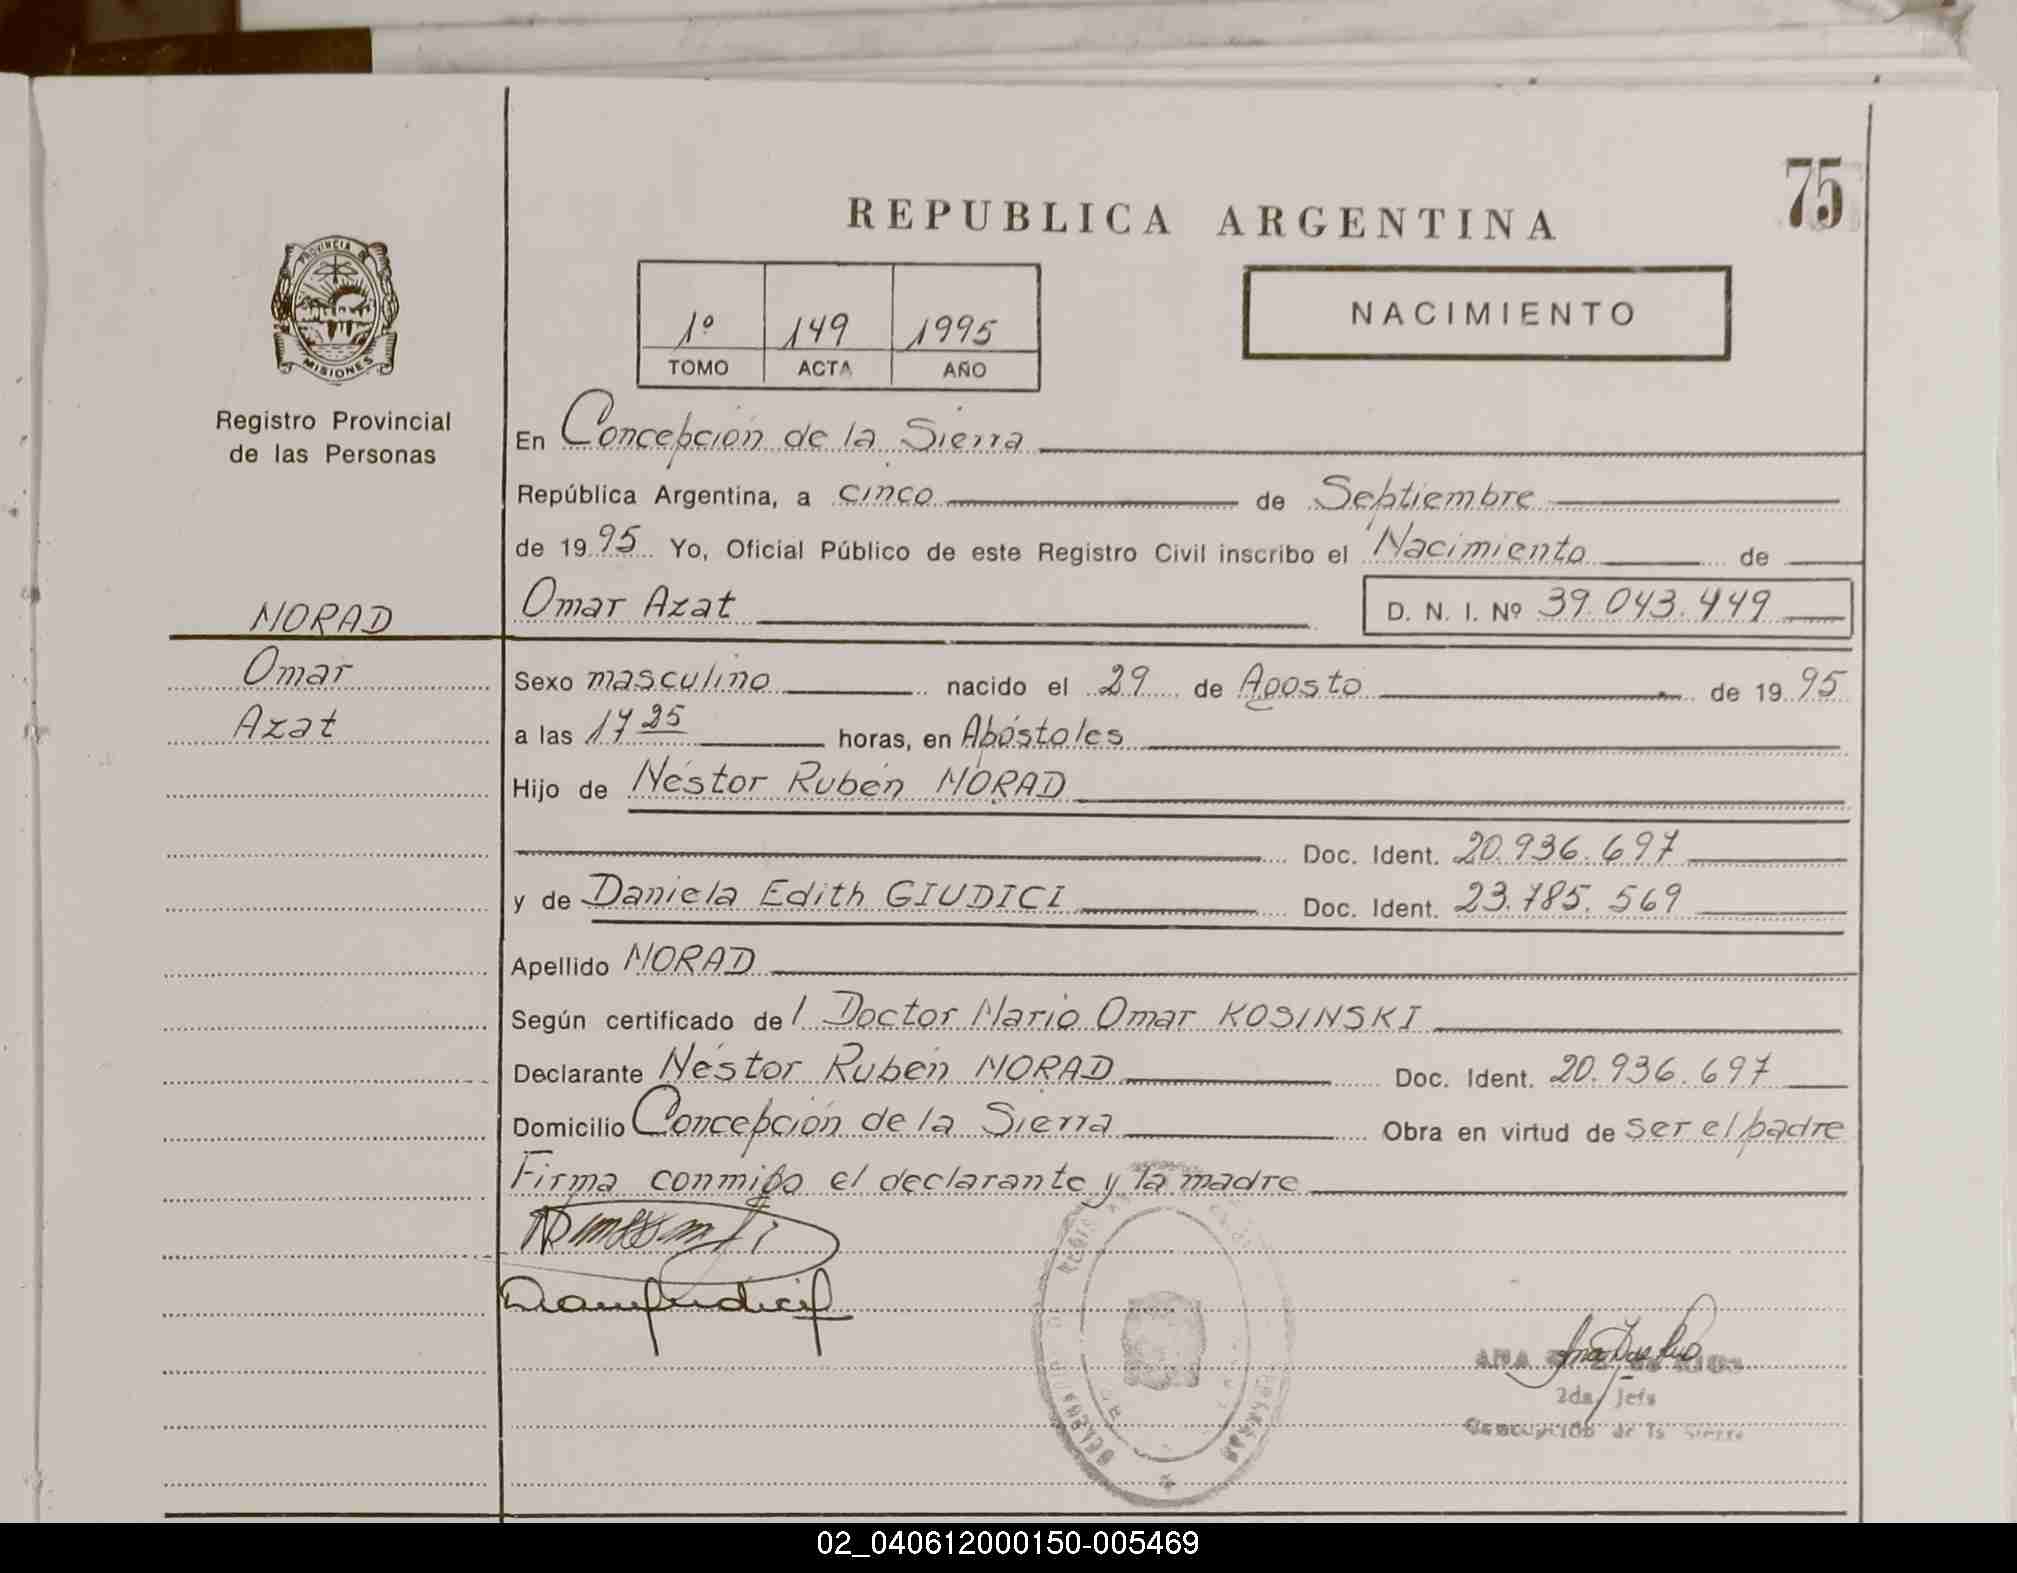 75
REPUBLICA ARGENTINA
PROVINCIA DE
MISIONES
1º 149 1995
TOMO ACTA AÑO
NACIMIENTO
Registro Provincial
de las Personas
En Concepción de la Sierra
República Argentina, a cinco de Septiembre
de 1995 Yo, Oficial Público de este Registro Civil inscribo el Nacimiento de
MORAD Omar Azat D. N. I. Nº 39.043.449
Omar Sexo masculino nacido el 29 de Agosto de 1995
Azat a las 17 25 horas, en Apóstoles
Hijo de Néstor Rubén MORAD
Doc. Ident. 20.936.697
y de Daniela Edith GIUDICI Doc. Ident. 23.785.569
Apellido MORAD
Según certificado del Doctor Mario Omar KOSINSKI
Declarante Néstor Rubén MORAD Doc. Ident. 20.936.697
Domicilio Concepción de la Sierra Obra en virtud de ser el padre
Firma conmigo el declarante y la madre
ANA
2da. Jefe
Concepción de la Sierra
02_040612000150-005469